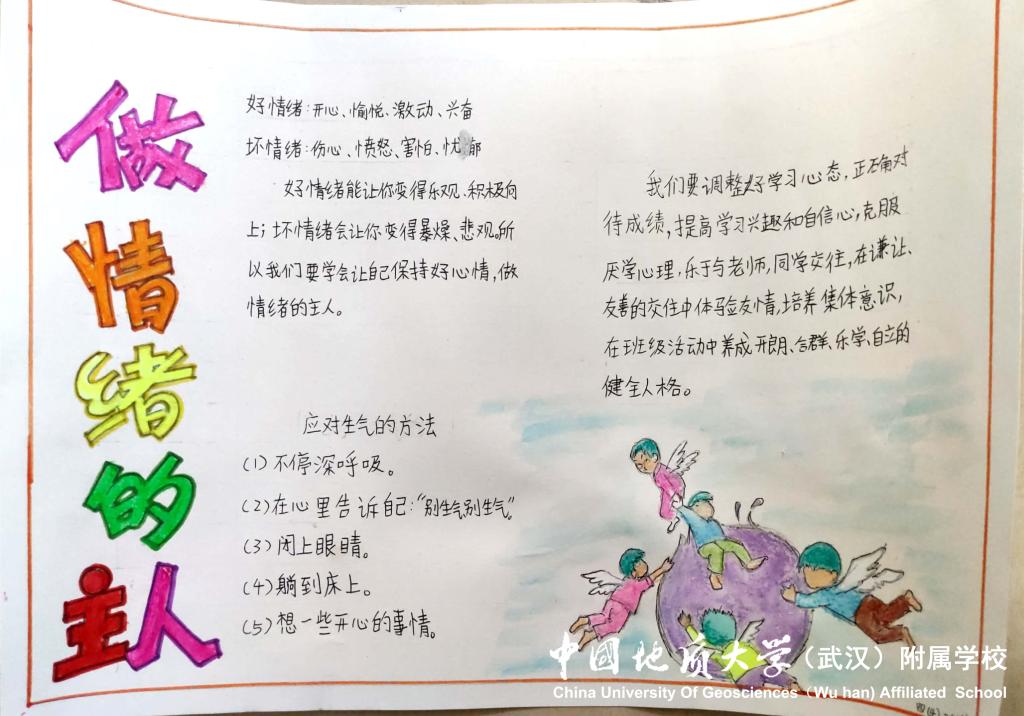 做
情
绪
的
主人
好情绪:开心、愉悦、激动、兴奋
坏情绪:伤心、愤怒、害怕、忧郁
好情绪能让你变得乐观、积极向
上;坏情绪会让你变得暴燥、悲观。所
以我们要学会让自己保持好心情,做
情绪的主人。
应对生气的方法
(1)不停深呼吸。
(2)在心里告诉自己:“别生气别生气”。
(3)闭上眼睛。
(4)躺到床上。
(5)想一些开心的事情。
我们要调整好学习心态,正确对
待成绩,提高学习兴趣和自信心,克服
厌学心理,乐于与老师,同学交往,在谦让、
友善的交往中体验友情,培养集体意识,
在班级活动中养成开朗、合群、乐学、自立的
健全人格。
中国地质大学(武汉)附属学校
China University Of Geosciences(Wu han) Affiliated School